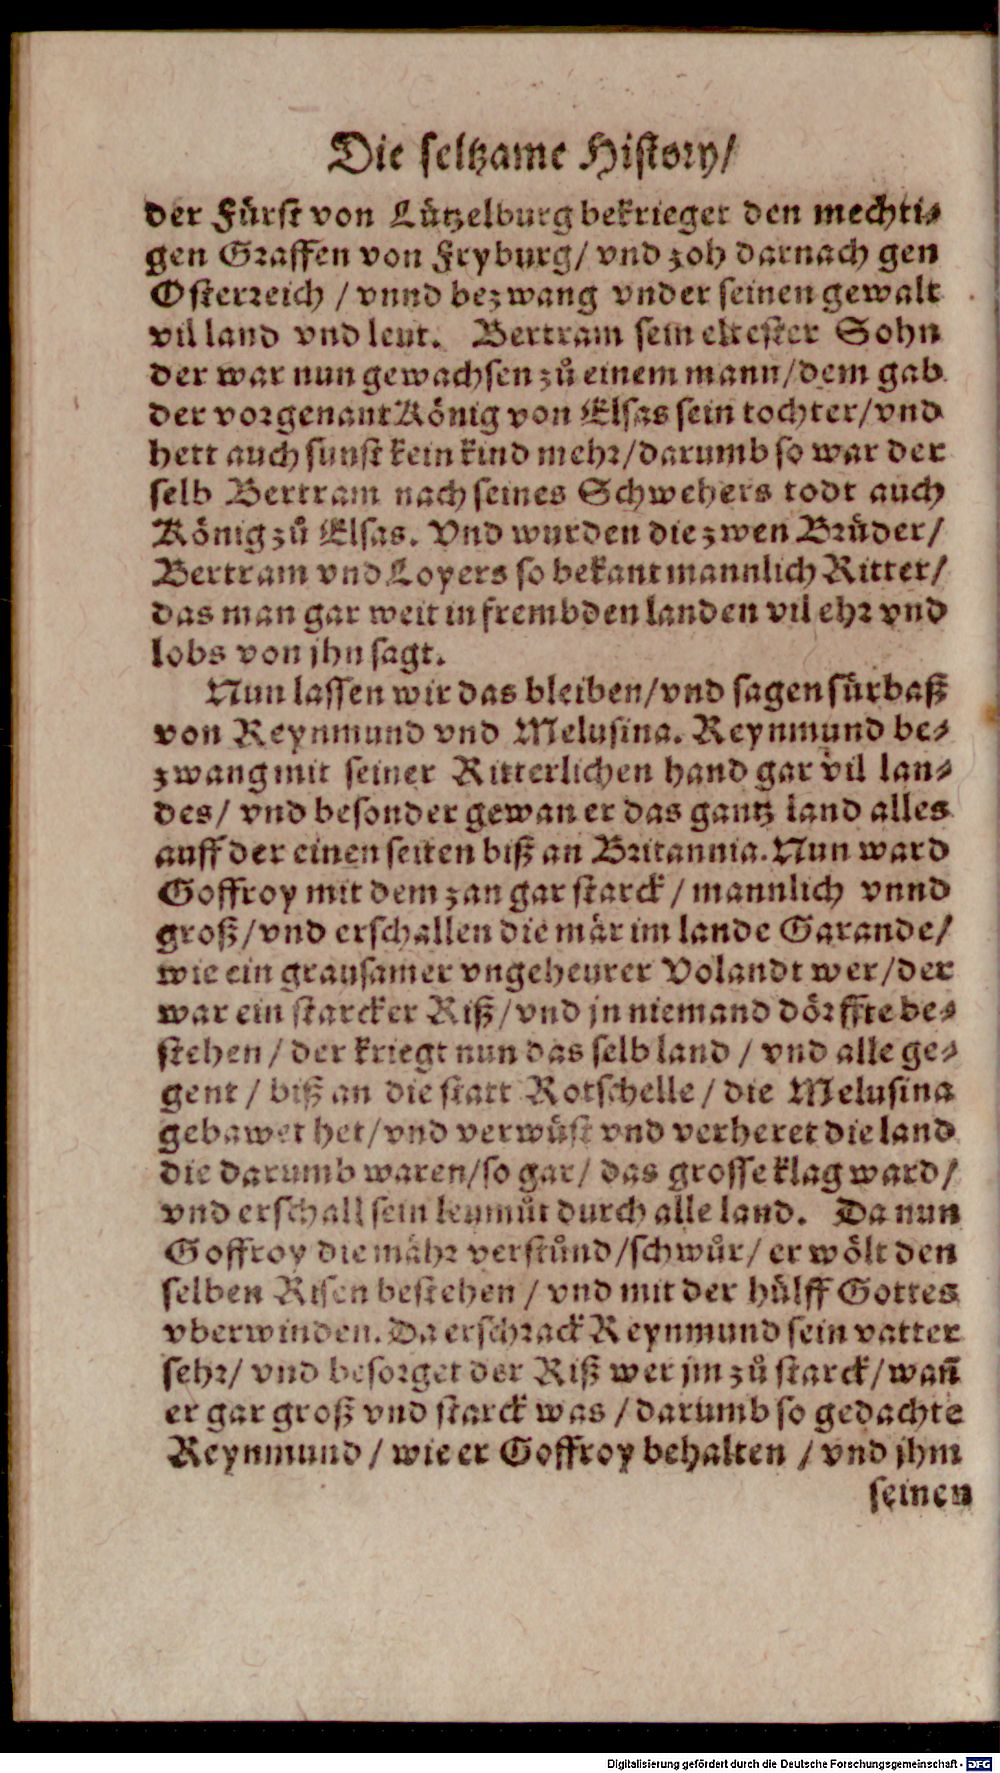 Die seltzame History/
der Fürst von Lützelburg bekrieget den mechti-
gen Graffen von Fryburg/ vnd zoh darnach gen
Osterreich / vnnd bezwang vnder seinen gewalt
vil land vnd leut. Bertram sein eltester Sohn
der war nun gewachsen zů einem mann/dem gab
der vorgenant König von Elsas sein tochter/vnd
hett auch sunst kein kind mehr/darumb so war der
selb Bertram nach seines Schwehers todt auch
König zů Elsas. Vnd wurden die zwen Brüder/
Bertram vnd Loyers so bekant mannlich Ritter/
das man gar weit in frembden landen vil ehr vnd
lobs von jhn sagt.
Nun lassen wir das bleiben/vnd sagen fürbaß
von Reynmund vnd Melusina. Reynmund be-
zwang mit seiner Ritterlichen hand gar vil lan-
des/ vnd besonder gewan er das gantz land alles
auff der einen seiten biß an Britannia. Nun ward
Goffroy mit dem zan gar starck / mannlich vnnd
groß/vnd erschallen die mär im lande Garande/
wie ein grausamer vngeheurer Volandt wer/der
war ein starcker Riß/vnd jn niemand dörffte be-
stehen / der kriegt nun das selb land / vnd alle ge-
gent / biß an die statt Rotschelle / die Melusina
gebawet het/vnd verwüst vnd verheret die land
die darumb waren/so gar/ das grosse klag ward/
vnd erschall sein leumůt durch alle land. Da nun
Goffroy die mähr verstůnd/schwůr/ er wölt den
selben Risen bestehen / vnd mit der hülff Gottes
vberwinden. Da erschrack Reynmund sein vatter
sehr/ vnd besorget der Riß wer jm zů starck/wañ
er gar groß vnd starck was / darumb so gedachte
Reynmund / wie er Goffroy behalten / vnd jhm
seinen
Digitalisierung gefördert durch die Deutsche Forschungsgemeinschaft - DFG